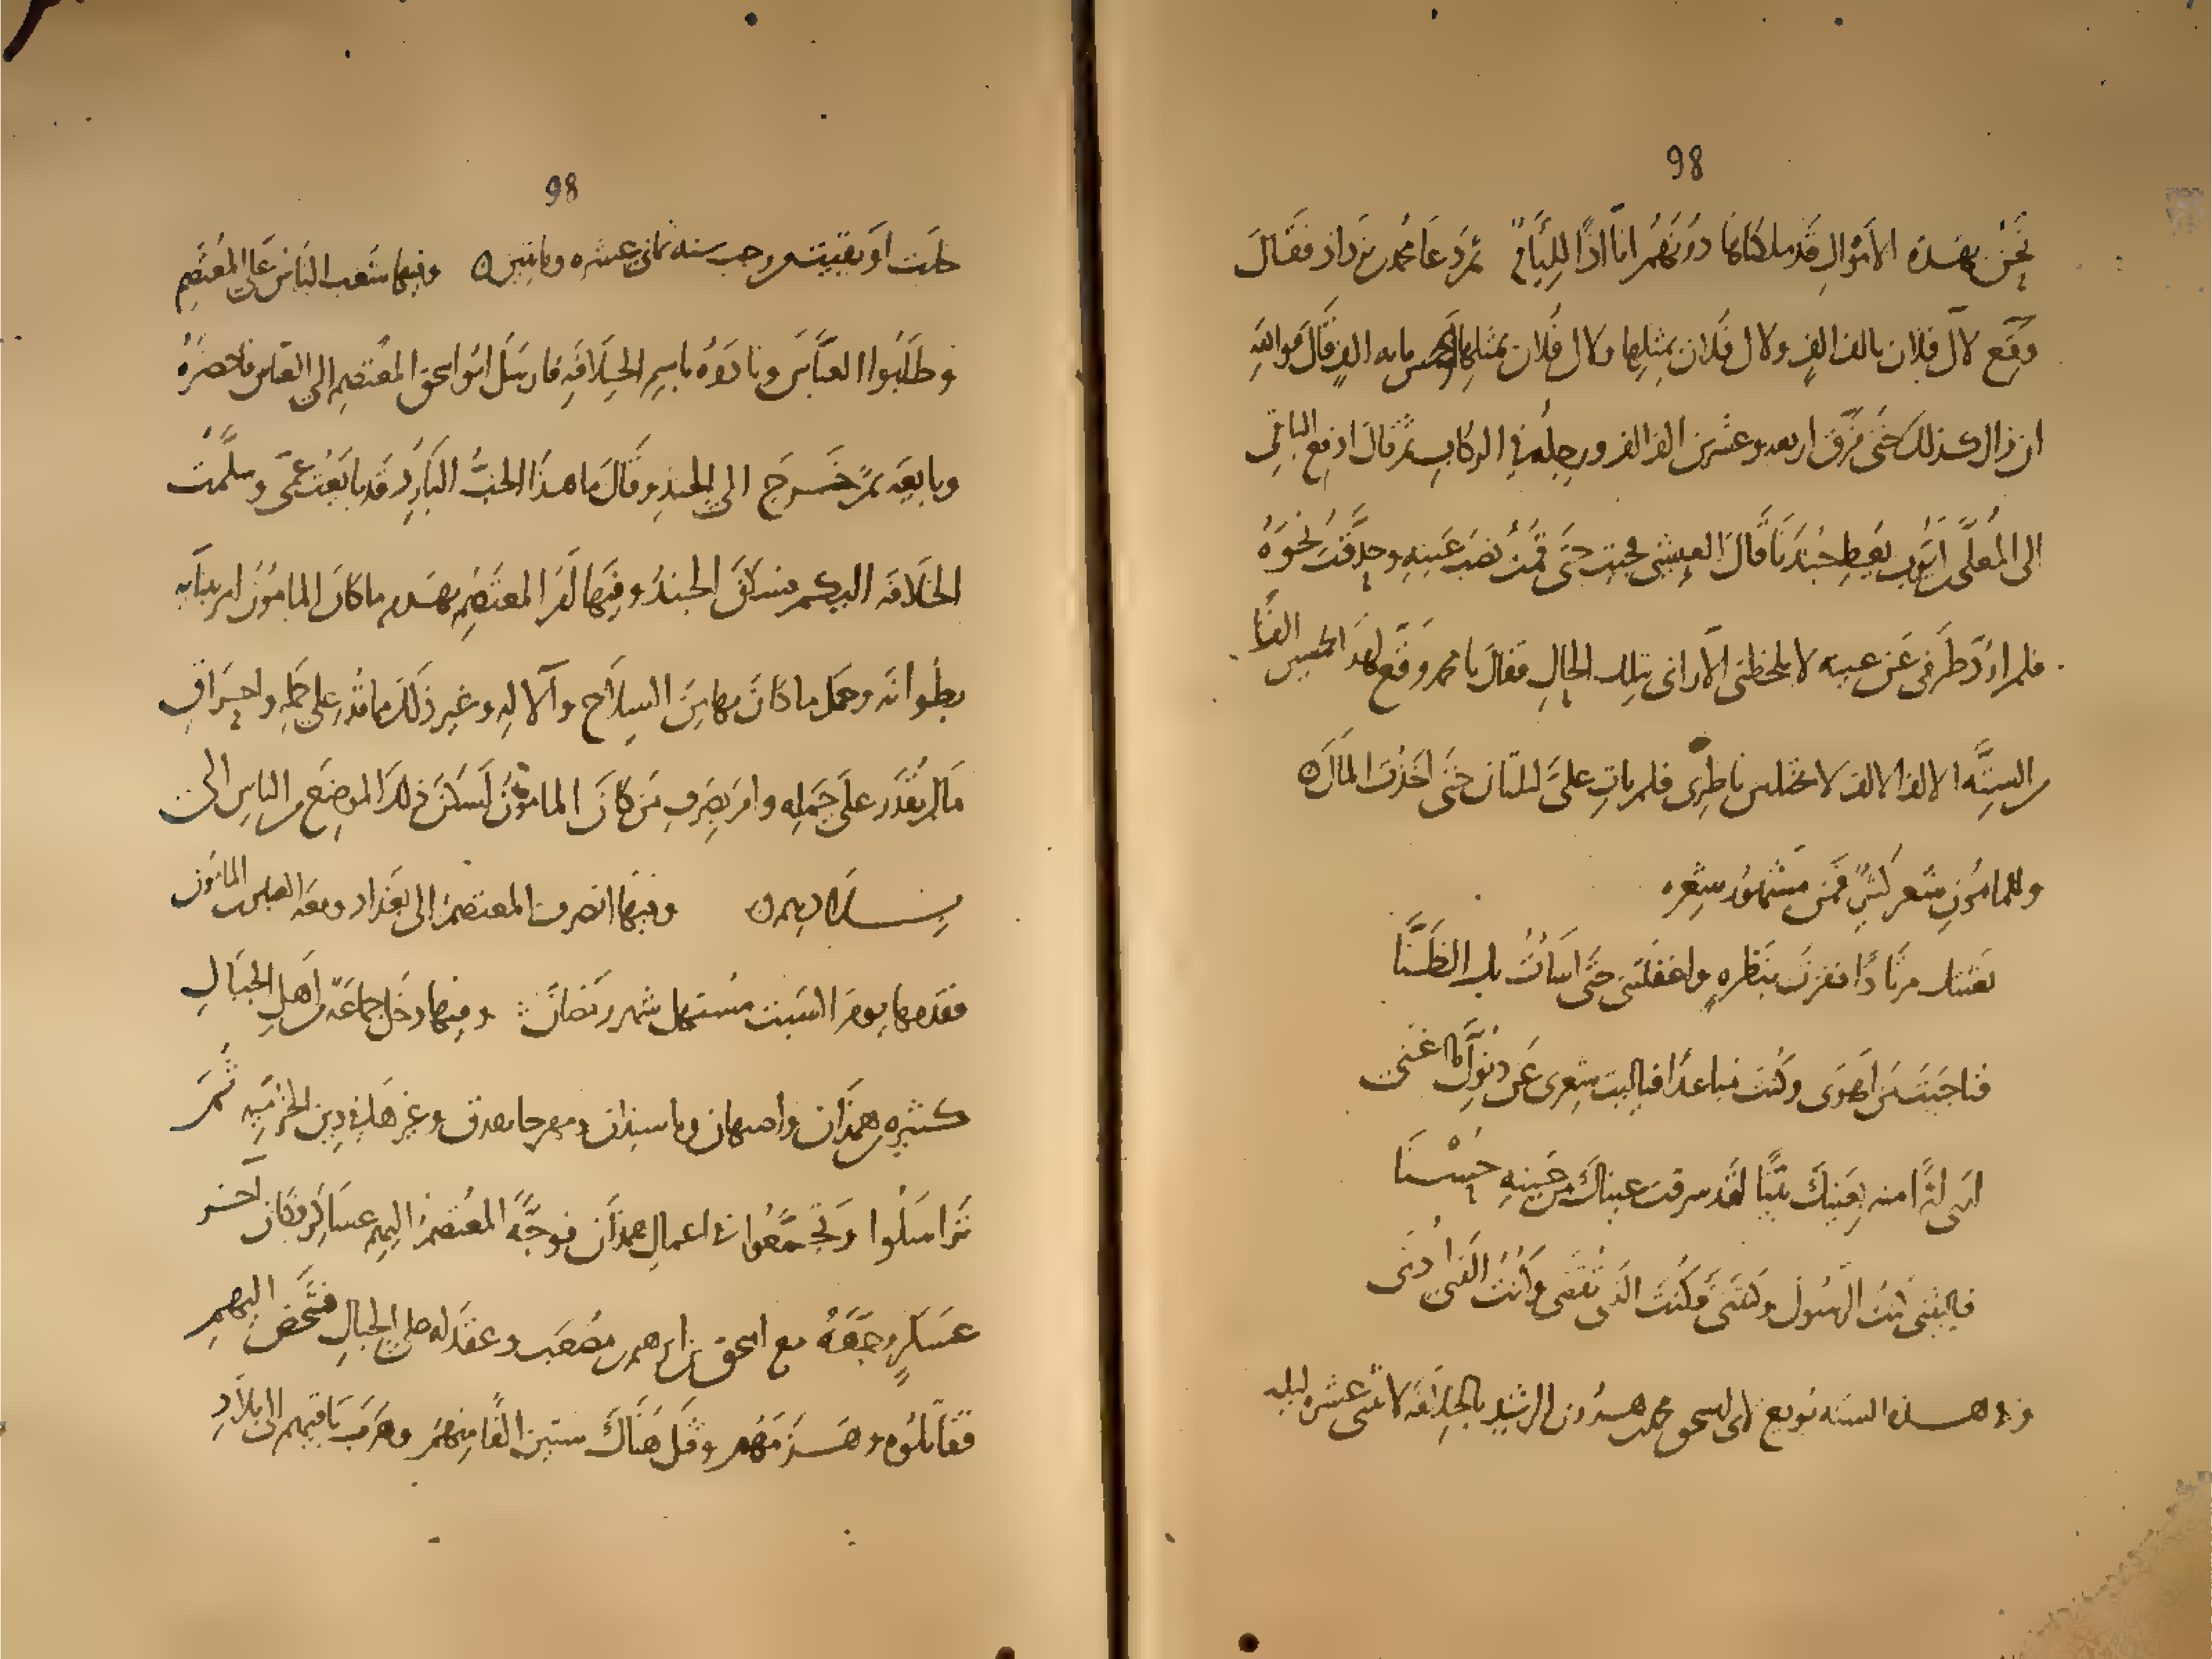 98
نحن بهذه الاموال قد ملكناها دونهم انا اذا للئام ثم دعا محمد بن يزداد فقال
وقع لآل فلان بالف الف ولآل فلان بمثلها ولآل فلان بمثلها مايه الف قال فوالله
ان زال كذلك حتى فرق اربعه وعشرين الف الف ورجله في الركاب ثم قال ادفع الباقي
الى المعلى ايوب يعطي جندنا قال العيشي فجيت حتى قمت نصب عينيه وحدقت نحوه
فلم اردد طرفي عن عينه لا يلحظني الا راني بتلك الحال فقال يا محمد وقع لهذا بخمسين الفا
من السته الالف الالف لا يختلس ناظري فلم يات علي ليلتان حتى اخذت المال ه
وللمامون شعر كثير فمن مشهور شعره
بعثتك مرتادا ففزت بنظره واغفلتني حتى اسات بك الظنا
فناجيت من اهوى وكنت مباعدا فياليت شعري عن دنوك ما اغنى
ارى اثرا منه بعينيك بينا لقد سرقت عيناك من عينيه حسنا
فياليتني كنت الرسول وكنتني وكنت الذي تقصى وكنت الذي ادنى
وفي هذه السنه بويع لابي اسحق محمد بن هرون الرشيد بالخلافه لاثنتي عشره ليله
98
خلت او بقيت من رجب سنه ثماني عشره ومايتين ه وفيها شغب الناس على المعتصم
وطلبوا العباس ونادوه باسم الخلافه فارسل ابو اسحق المعتصم الى العباس فاحضره
وبايعه ثم خرج الى الجند وقال ما هذا الحب البارد قد بايعت عمي وسلمت
الخلافه اليه فسكن الجند وفيها امر المعتصم بهدم ما كان المامون امر ببنايه
بطوانه وحمل ما كان بها من السلاح والاله وغير ذلك مما قدر على حمله واحراق
ما لم يقدر على حمله وامر بصرف من كان المامون اسكن ذلك الموضع من الناس الى
بلادهم ه وفيها انصرف المعتصم الى بغداد ومعه العباس بن المامون
فقدمها يوم السبت مستهل شهر رمضان وفيها دخل جماعه من اهل الجبال
كثيره من همذان واصبهان وماسبذان ومهرجانقذق وغيرها في دين الخرميه ثم
تراسلوا وتجمعوا في اعمال همذان فوجه المعتصم اليهم عساكر فكان آخر
عسكر وجهه مع اسحق بن ابرهيم بن مصعب وعقد له على الجبال فشخص اليهم
فقاتلوه وهزمهم وقتل هناك ستين الفا منهم وهرب باقيهم الى بلاد